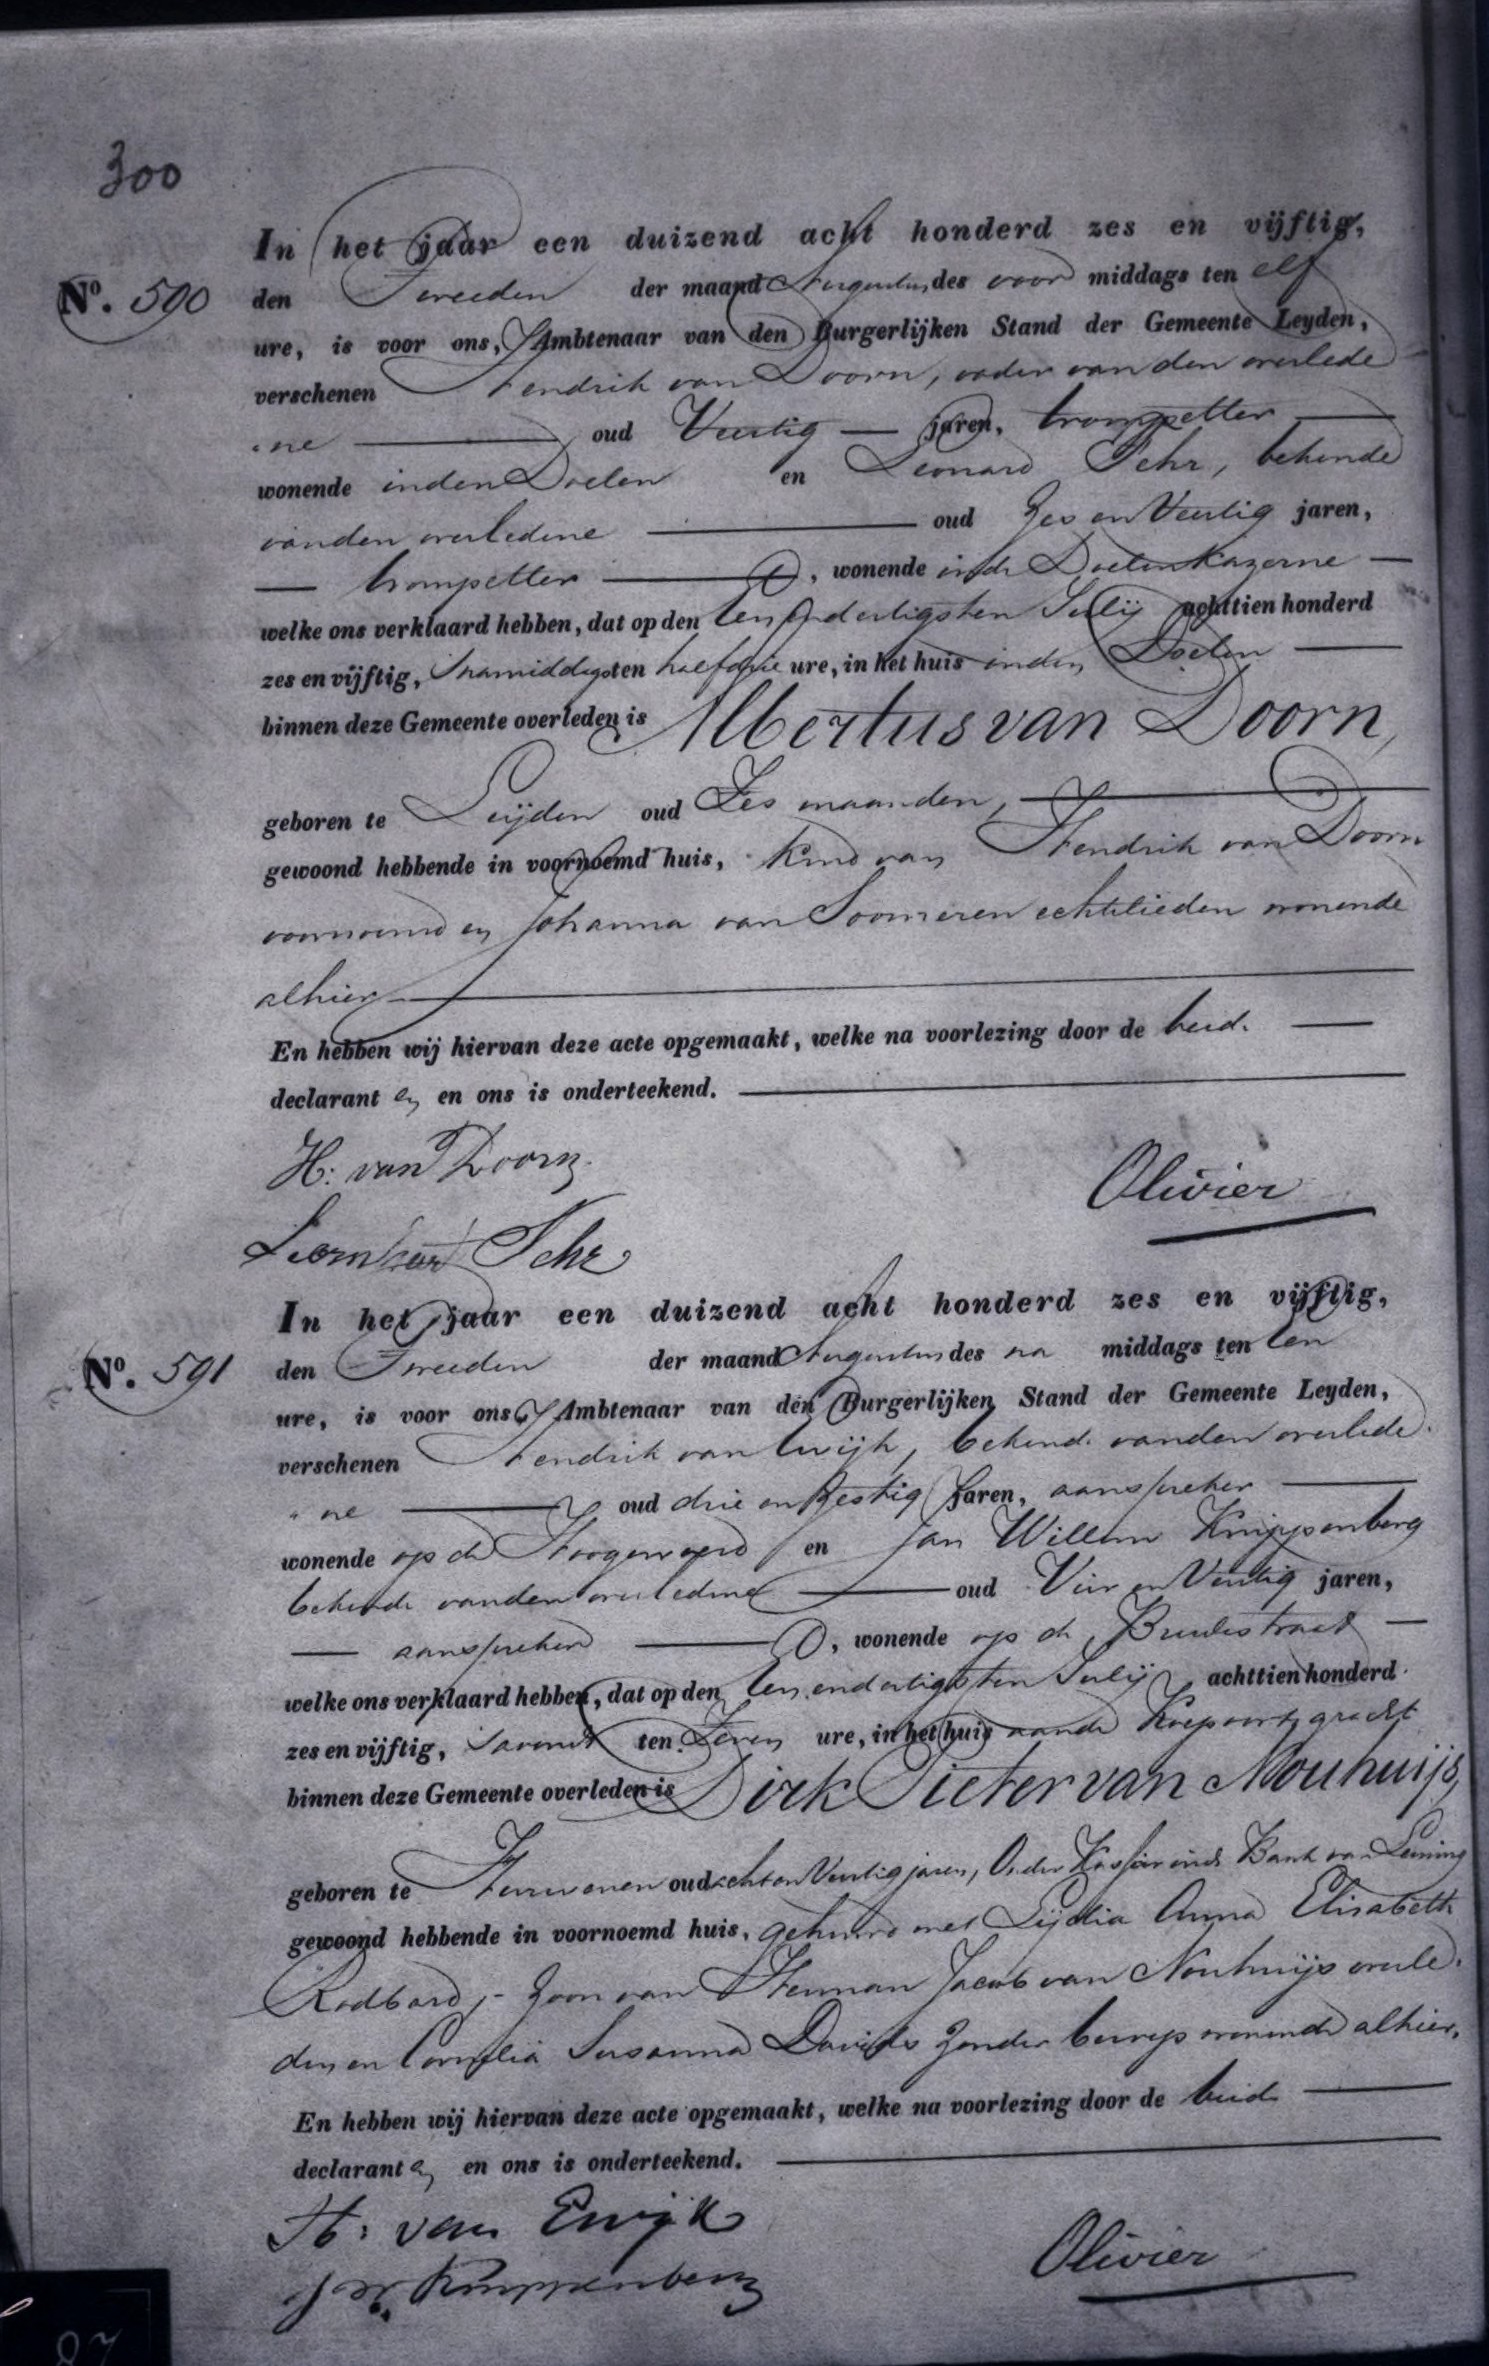 300
In het jaar een duizend acht honderd zes en vijftig,
No. 590 den Tweeden der maand Augustus des voor middags ten elf
ure, is voor ons, Ambtenaar van den Burgerlijken Stand der Gemeente Leyden,
verschenen Hendrik van Doorn, vader van den overlede
"ne oud Veertig jaren, trompetter
wonende in den Doelen en Leonard Fehr, bekende
van den overledene oud Zes en Veertig jaren,
trompetter, wonende in de Doelenkazerne
welke ons verklaard hebben, dat op den Een en dertigsten Julij achttien honderd
zes en vijftig, 's namiddags ten half drie ure, in het huis in den Doelen
binnen deze Gemeente overleden is Albertus van Doorn,
geboren te Leijden oud Zes maanden,
gewoond hebbende in voornoemd huis, Kind van Hendrik van Doorn
voornoemd en Johanna van Someren echtelieden wonende
alhier
En hebben wij hiervan deze acte opgemaakt, welke na voorlezing door de beid.
declarant en en ons is onderteekend.
H: van Doorn.
Olivier
Fehr
In het jaar een duizend acht honderd zes en vijftig,
No. 591 den Tweeden der maand Augustus des na middags ten een
ure, is voor ons, Ambtenaar van den Burgerlijken Stand der Gemeente Leyden,
verschenen Hendrik van Ewijk, bekende van den overlede
"ne oud drie en Zestig jaren, aanspreker
wonende op de Hoogewoerd en Jan Willem Knippenberg
bekende van den overledene oud Vier en Veertig jaren,
aanspreker, wonende op de Breedestraat
welke ons verklaard hebben, dat op den Een en dertigsten Julij achttien honderd
zes en vijftig, 's avonds ten Zeven ure, in het huis aan de Koepoortsgracht
binnen deze Gemeente overleden is Dirk Pieter van Nouhuijs,
geboren te Heerenveen oud acht en Veertig jaren, Onder Kassier in de Bank van Leening
gewoond hebbende in voornoemd huis, gehuwd met Lijdia Anna Elisabeth
Rodbard, - Zoon van Herman Jacob van Nouhuijs overle
den en Cornelia Susanna Davids Zonder beroep wonende alhier.
En hebben wij hiervan deze acte opgemaakt, welke na voorlezing door de beide
declarant en en ons is onderteekend.
H: van Ewijk
Olivier
J W Knippenberg
87